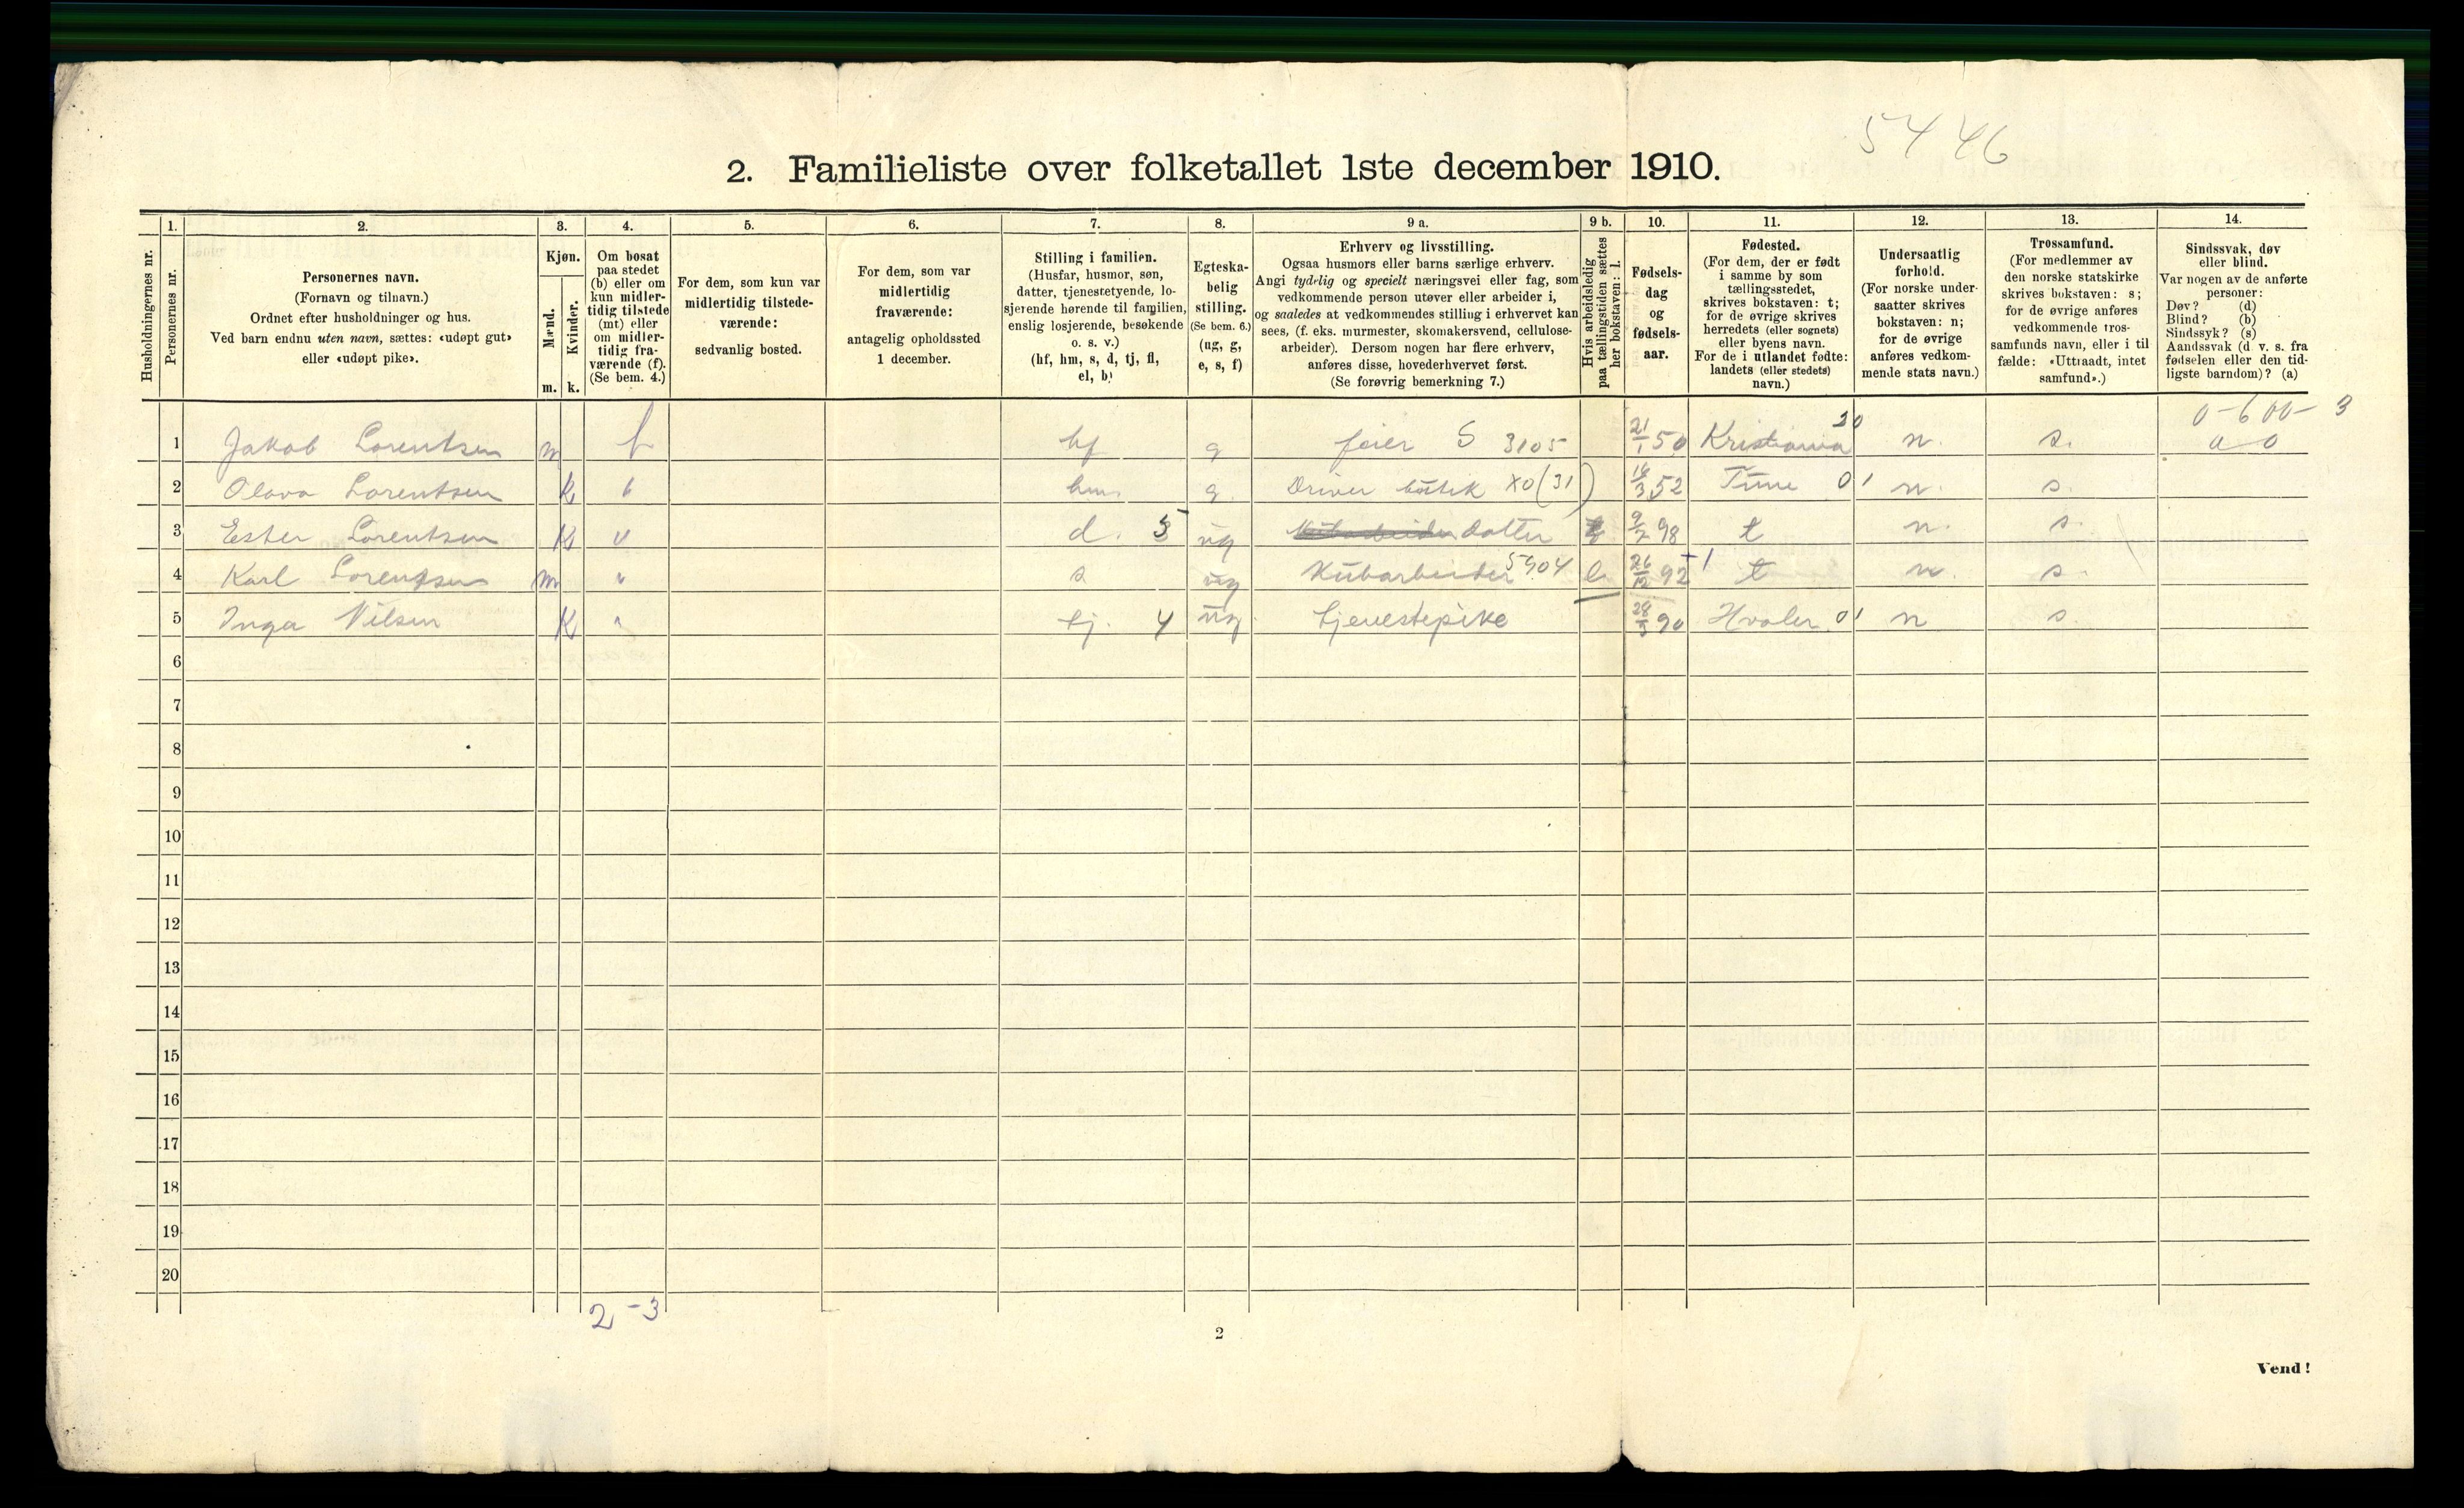 54 46
2. Familieliste over folketallet 1ste december 1910.
Husholdningernes nr.
1.
Personernes nr.
2.
Personernes navn.
(Fornavn og tilnavn.)
Ordnet efter husholdninger og hus.
Ved barn endnu uten navn, sættes: «udøpt gut»
eller «udøpt pike».
3.
Kjøn.
Mænd.
m.
Kvinder.
k.
4.
Om bosat
paa stedet
(b) eller om
kun midler-
tidig tilstede
(mt) eller
om midler-
tidig fra-
værende (f).
(Se bem. 4.)
5.
For dem, som kun var
midlertidig tilstede-
værende:
sedvanlig bosted.
6.
For dem, som var
midlertidig
fraværende:
antagelig opholdssted
1 december.
7.
Stilling i familien.
(Husfar, husmor, søn,
datter, tjenestetyende, lo-
sjerende hørende til familien,
enslig losjerende, besøkende
o. s. v.)
(hf, hm, s, d, tj, fl,
el, b)
8.
Egteska-
belig
stilling.
(Se bem. 6.)
(ug, g,
e, s, f)
9 a.
Erhverv og livsstilling.
Ogsaa husmors eller barns særlige erhverv.
Angi tydelig og specielt næringsvei eller fag, som
vedkommende person utøver eller arbeider i,
og saaledes at vedkommendes stilling i erhvervet kan
sees, (f. eks. murmester, skomakersvend, cellulose-
arbeider). Dersom nogen har flere erhverv,
anføres disse, hovederhvervet først.
(Se forøvrig bemerkning 7.)
9 b.
Hvis arbeidsledig
paa tællingstiden sættes
her bokstaven: l.
10.
Fødsels-
dag
og
fødsels-
aar.
11.
Fødested.
(For dem, der er født
i samme by som
tællingsstedet,
skrives bokstaven: t;
for de øvrige skrives
herredets (eller sognets)
eller byens navn.
For de i utlandet fødte:
landets (eller stedets)
navn.)
12.
Undersaatlig
forhold.
(For norske under-
saatter skrives
bokstaven: n;
for de øvrige
anføres vedkom-
mende stats navn.)
13.
Trossamfund.
(For medlemmer av
den norske statskirke
skrives bokstaven: s;
for de øvrige anføres
vedkommende tros-
samfunds navn, eller i til-
fælde: «Uttraadt, intet
samfund».)
14.
Sindssvak, døv
eller blind.
Var nogen av de anførte
personer:
Døv? (d)
Blind? (b)
Sindssyk? (s)
Aandssvak (d. v. s. fra
fødselen eller den tid-
ligste barndom)? (a)
0-600-3
1 Jakob Lorentsen m b hf g feier S 3105 21/1 50 Kristiania 20 n. s. 0 0
2 Olava Lorentsen k b hm. g. Driver butik X0(31) 16/3 52 Tune 01 n. s.
3 Ester Lorentsen k " d. 5 ug datter 9/7 98 t n. s.
4 Karl Lorentsen m " s ug Kubarbeider 5904 l 26/12 92 t n. s.
5 Inga Nilsen k " tj. 4 ug. tjenestepike 28/5 90 Hvaler 01 n s.
6
7
8
9
10
11
12
13
14
15
16
17
18
19
20
2-3
2
Vend!